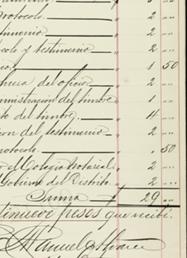 rotocolo 2 "
timonio 2 "
colo y testimonio 2 "
1 50
huca del oficio 2 "
ministracion del timbre 1 "
to del timbre 4 "
cion del testimonio 2 "
rotocolo " 50
el Colegio Notarial 2 "
Gobierno del Distrito 2 "
Suma 29 "
tinueve pesos que recibi
Manuel Alvarez